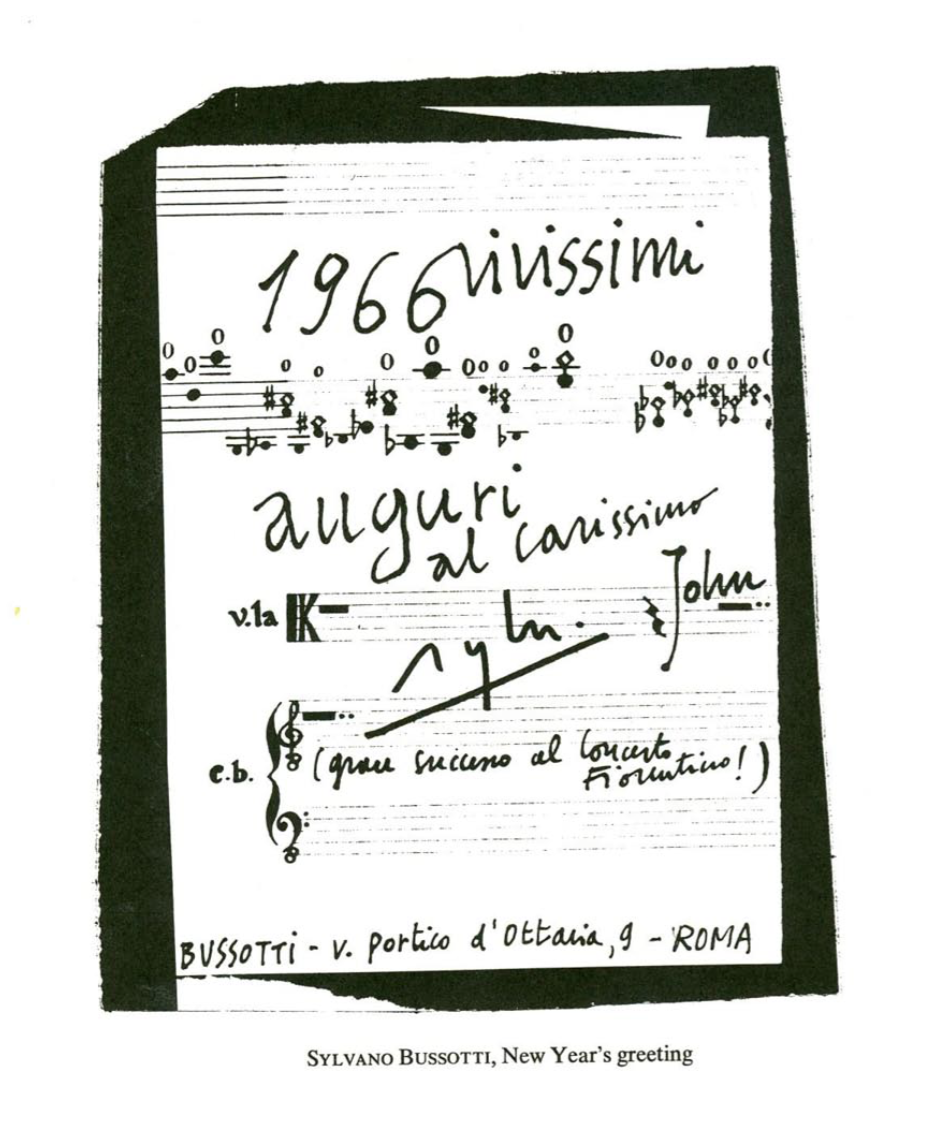 1966 vivissimi
auguri
al carissimo
John
v.la
sylv.
c.b.
(grande successo al Concerto
Fiorentino!)
BUSSOTTI - v. Portico d'Ottavia, 9 - ROMA
SYLVANO BUSSOTTI, New Year's greeting